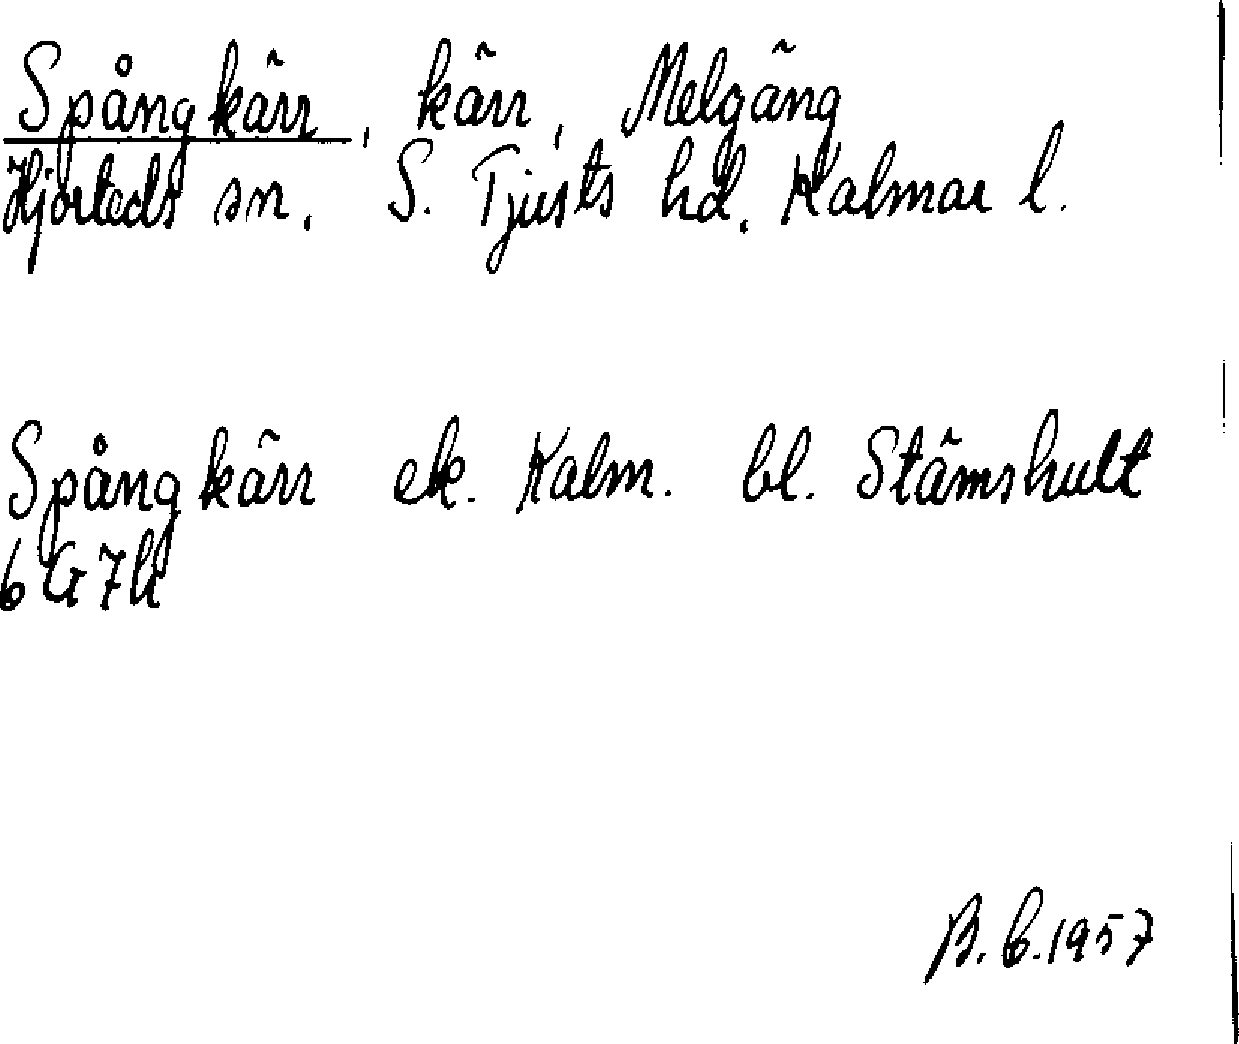 Spångkärr, kärr, Melgäng
Hjorteds sn. S. Tjusts hd. Kalmar l.
Spångkärr ek. Kalm. bl. Stämshult
6G7h
B.C.1957